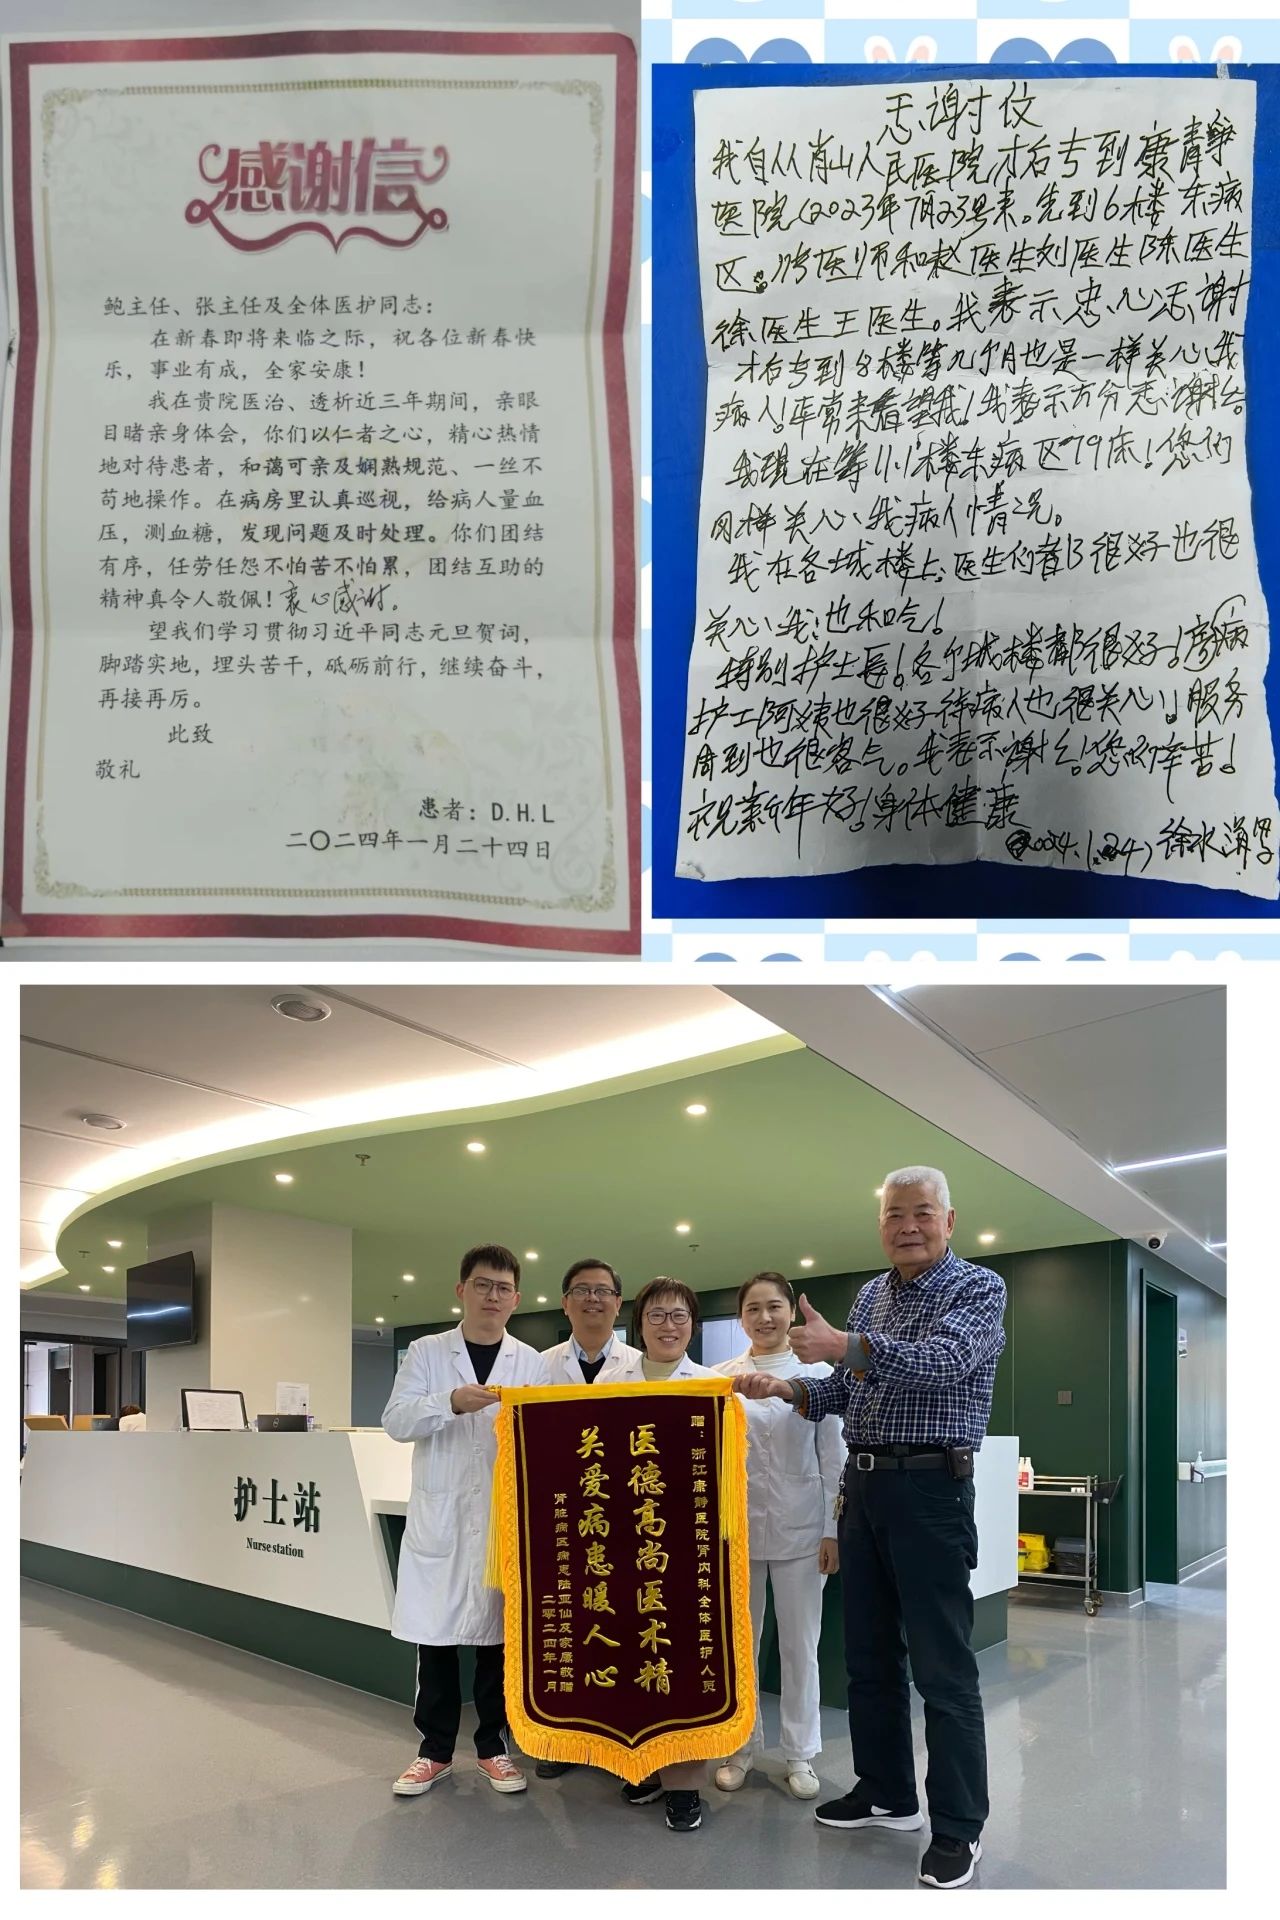 感谢信
鲍主任、张主任及全体医护同志：
在新春即将来临之际，祝各位新春快
乐，事业有成，全家安康！
我在贵院医治、透析近三年期间，亲眼
目睹亲身体会，你们以仁者之心，精心热情
地对待患者，和蔼可亲及娴熟规范、一丝不
苟地操作。在病房里认真巡视，给病人量血
压，测血糖，发现问题及时处理。你们团结
有序，任劳任怨不怕苦不怕累，团结互助的
精神真令人敬佩！衷心感谢。
望我们学习贯彻习近平同志元旦贺词，
脚踏实地，埋头苦干，砥砺前行，继续奋斗，
再接再厉。
此致
敬礼
患者：D.H.L
二〇二四年一月二十四日
谢
我自从肖山人民医院才后专到康
医院（2023年7月23号来。先到6楼东病
区。医师和赵医生刘医生陈医生
徐医生王医生。我表示忠心谢
才后专到8楼等九个月也是一样关心我
病人！非常来看望我！我表示万分谢
我现在等11楼东病区79床！您们
同样关心我病人情况。
我在各楼上医生们都很好也很
关心我！也和气！
特别护士！各楼都很好！病
护工阿姨也很好待病人也很关心！服务
周到也很客气。我表示谢！您们辛苦！
祝新年好！身体健康
2024.1.24 徐水
护士站
Nurse station
赠：浙江康静医院肾内科全体医护人员
医德高尚医术精
关爱病患暖人心
肾脏病区病患陆亚仙及家属敬赠
二零二四年一月